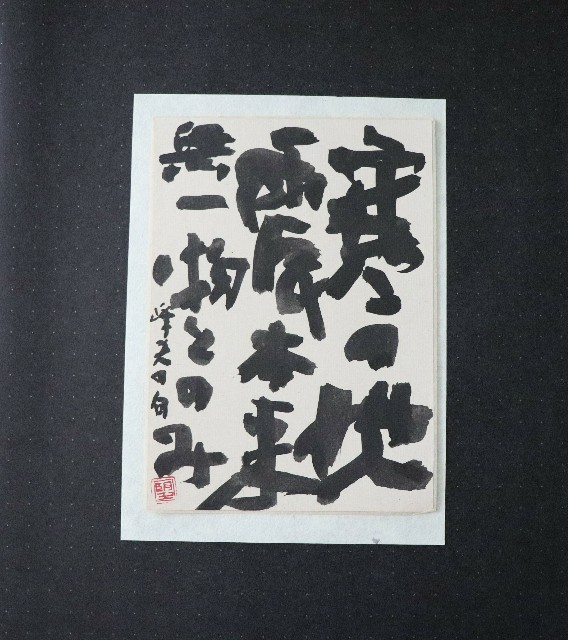 寒の地
震本来
無一物とのみ
峰夫の句